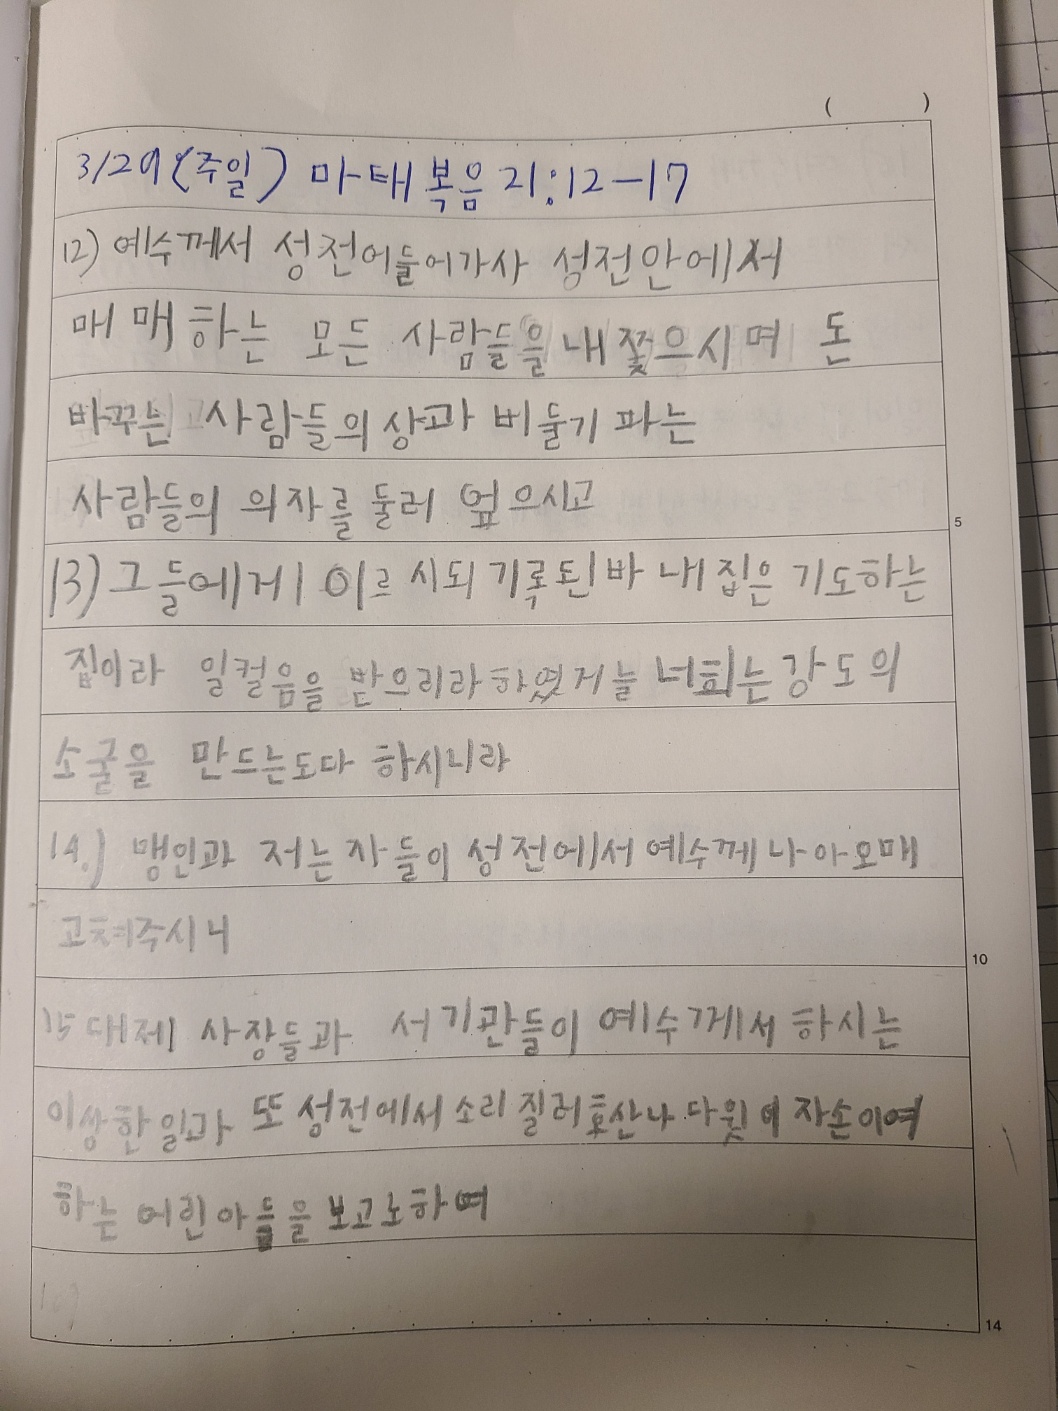 3/29(주일) 마태복음 21:12-17
12) 예수께서 성전어들어가사 성전안에서
매매하는 모든 사람들을 내쫓으시며 돈
바꾸는 사람들의 상과 비둘기 파는
사람들의 의자를 둘러 엎으시고
13) 그들에게 이르시되 기록된바 내집은 기도하는
집이라 일컬음을 받으리라하였거늘 너희는 강도의
소굴을 만드는도다 하시니라
14.) 맹인과 저는자들이 성전에서예수께나아오매
고쳐주시니
15 대제 사장들과 서기관들이 예수께서 하시는
이상한일과 또 성전에서 소리 질러호산나 다윗에 자손이여
하는 어린아들을 보고노하여
16)